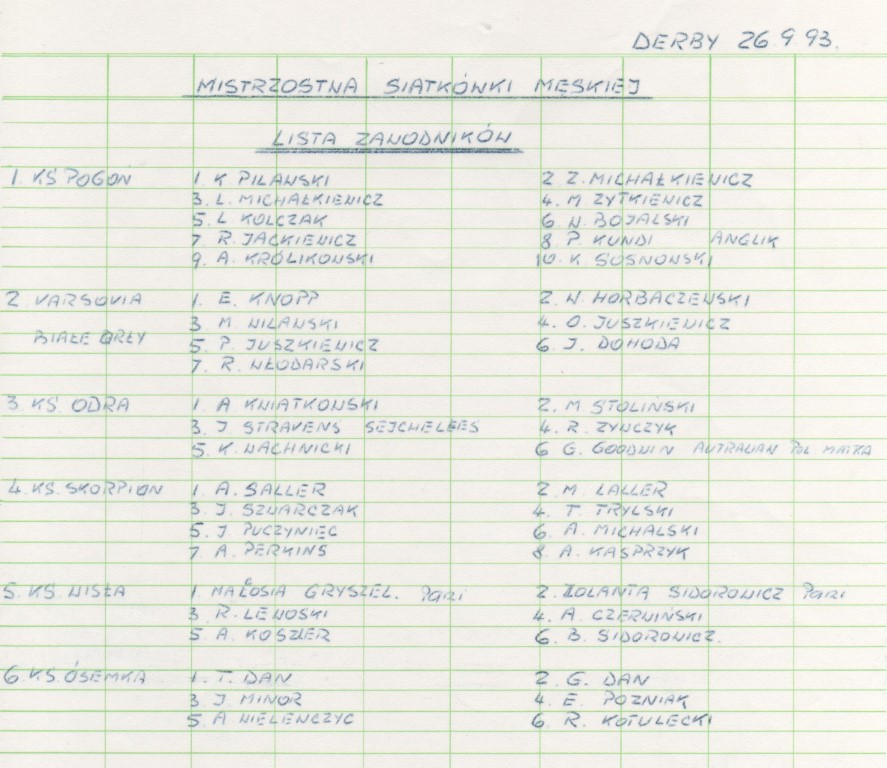 DERBY 26 9 93.
MISTRZOSTWA SIATKÓWKI MĘSKIEJ
LISTA ZAWODNIKÓW
1. KS POGOŃ 1. K PILAWSKI 2 Z. MICHAŁKIEWICZ
3. L. MICHAŁKIEWICZ 4. M ZYTKIEWICZ
5. L KOLCZAK 6 W. BOJALSKI
7 R. JACKIEWICZ 8 P. KUNDI ANGLIK
9. A. KRÓLIKOWSKI 10. K SOSNOWSKI
2 VARSOVIA 1. E. KNOPP 2. W. HORBACZEWSKI
3 M. WILAWSKI 4. O. JUSZKIEWICZ
BIAŁE ORŁY 5. P. JUSZKIEWICZ 6 J. DOHODA
7. R. WŁODARSKI
3. KS. ODRA 1. A KWIATKOWSKI 2. M STOLIŃSKI
3. J STRAVENS 4. R. ZYNCZYK
5. K. WACHNICKI 6 G. GOODWIN AUTRALIAN POL. MATKA
4. KS. SKORPION 1. A. SALLER 2. M. LALLER
3. J. SZWARCZAK 4. T. TRYLSKI
5. J PUCZYNIEC 6. A. MICHALSKI
7 A. PERKINS 8. A. KASPRZYK
5. KS. WISŁA 1. MAŁGOSIA GRYSZEL. Pani 2. JOLANTA SIDOROWICZ Pani
3 R. LEWOSKI 4. A. CZERWIŃSKI
5 A. KOSZLER 6. B. SIDOROWICZ.
6. KS. ÓSEMKA 1. T. DAN 2. G. DAN
3 J. MINOR 4. E. POZNIAK
5. A WIELENCZYC 6. R. KOTULECKI